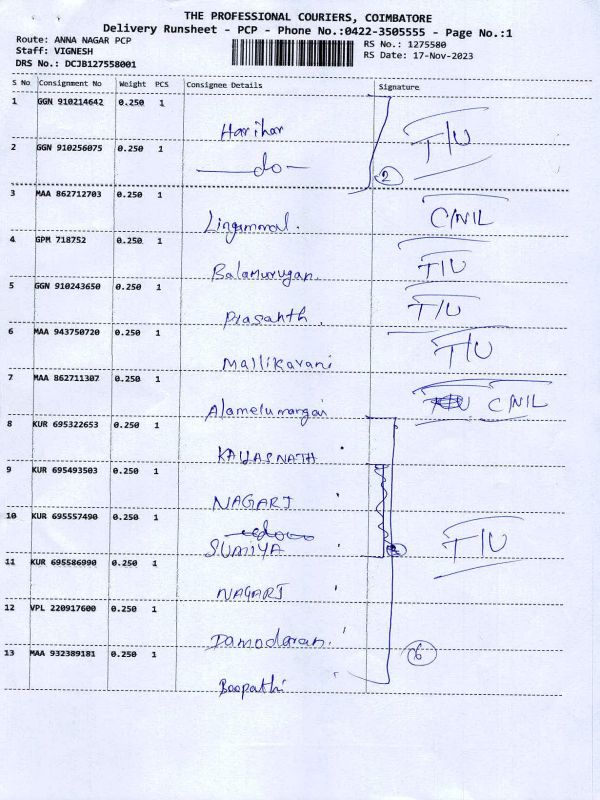 THE PROFESSIONAL COURIERS, COIMBATORE
Delivery Runsheet - PCP - Phone No.:0422-3505555 - Page No.:1
Route: ANNA NAGAR PCP
RS No.: 1275580
Staff: VIGNESH
RS Date: 17-Nov-2023
DRS No.: DCJB127558001
S No Consignment No Weight PCS Consignee Details Signature
1 GGN 910214642 0.250 1
Harihar T/U
2 GGN 910256075 0.250 1
do 2
3 MAA 862712703 0.250 1
Lingammal. C/NIL
4 GPM 718752 0.250 1
Balamurugan. T/U
5 GGN 910243650 0.250 1
Prasanth. T/U
6 MAA 943750720 0.250 1
Mallikavani T/U
7 MAA 862711307 0.250 1
Alamelumangai C/NIL
8 KUR 695322653 0.250 1
KAILASNATH
9 KUR 695493503 0.250 1
NAGARJ
10 KUR 695557490 0.250 1
SUMIYA T/U
11 KUR 695586990 0.250 1
NAGARJ
12 VPL 220917600 0.250 1
Damodaran.
13 MAA 932389181 0.250 1 6
Boopathi